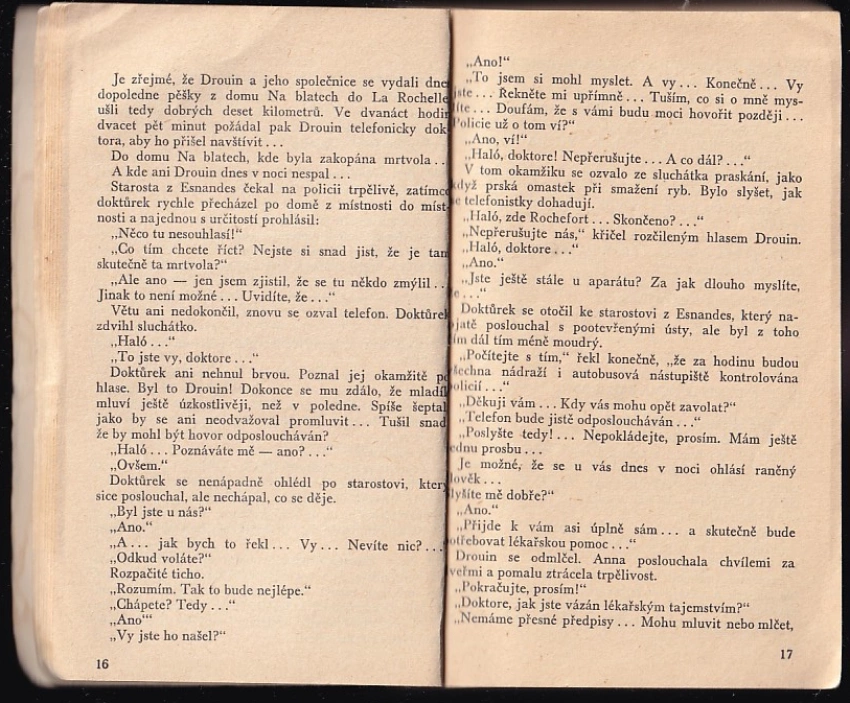 Je zřejmé, že Drouin a jeho společnice se vydali dnes
dopoledne pěšky z domu Na blatech do La Rochelle
ušli tedy dobrých deset kilometrů. Ve dvanáct hodin
dvacet pět minut požádal pak Drouin telefonicky dok-
tora, aby ho přišel navštívit . . .
Do domu Na blatech, kde byla zakopána mrtvola . .
A kde ani Drouin dnes v noci nespal . . .
Starosta z Esnandes čekal na policii trpělivě, zatímco
doktůrek rychle přecházel po domě z místnosti do míst-
nosti a najednou s určitostí prohlásil:
„Něco tu nesouhlasí!“
„Co tím chcete říct? Nejste si snad jist, že je tam
skutečně ta mrtvola?“
„Ale ano — jen jsem zjistil, že se tu někdo zmýlil . .
Jinak to není možné . . . Uvidíte, že . . .“
Větu ani nedokončil, znovu se ozval telefon. Doktůrek
zdvihl sluchátko.
„Haló . . .“
„To jste vy, doktore . . .“
Doktůrek ani nehnul brvou. Poznal jej okamžitě po
hlase. Byl to Drouin! Dokonce se mu zdálo, že mladík
mluví ještě úzkostlivěji, než v poledne. Spíše šeptal
jako by se ani neodvažoval promluvit . . . Tušil snad
že by mohl být hovor odposloucháván?
„Haló . . . Poznáváte mě — ano? . . .“
„Ovšem.“
Doktůrek se nenápadně ohlédl po starostovi, který
sice poslouchal, ale nechápal, co se děje.
„Byl jste u nás?“
„Ano.“
„A . . . jak bych to řekl . . . Vy . . . Nevíte nic? . . .
„Odkud voláte?“
Rozpačité ticho.
„Rozumím. Tak to bude nejlépe.“
„Chápete? Tedy . . .“
„Ano“'
„Vy jste ho našel?“
16
„Ano!“
„To jsem si mohl myslet. A vy . . . Konečně . . . Vy
jste . . . Řekněte mi upřímně . . . Tuším, co si o mně mys-
líte . . . Doufám, že s vámi budu moci hovořit později . . .
Policie už o tom ví?“
„Ano, ví!“
„Haló, doktore! Nepřerušujte . . . A co dál? . . .“
V tom okamžiku se ozvalo ze sluchátka praskání, jako
když prská omastek při smažení ryb. Bylo slyšet, jak
se telefonistky dohadují.
„Haló, zde Rochefort . . . Skončeno? . . .“
„Nepřerušujte nás,“ křičel rozčileným hlasem Drouin.
„Haló, doktore . . .“
„Ano.“
„Jste ještě stále u aparátu? Za jak dlouho myslíte,
že . . .“
Doktůrek se otočil ke starostovi z Esnandes, který na-
pjatě poslouchal s pootevřenými ústy, ale byl z toho
čím dál tím méně moudrý.
„Počítejte s tím,“ řekl konečně, „že za hodinu budou
všechna nádraží i autobusová nástupiště kontrolována
policií . . .“
„Děkuji vám . . . Kdy vás mohu opět zavolat?“
„Telefon bude jistě odposloucháván . . .“
„Poslyšte tedy! . . . Nepokládejte, prosím. Mám ještě
jednu prosbu . . .
Je možné, že se u vás dnes v noci ohlásí raněný
člověk . . .
Slyšíte mě dobře?“
„Ano.“
„Přijde k vám asi úplně sám . . . a skutečně bude
potřebovat lékařskou pomoc . . .“
Drouin se odmlčel. Anna poslouchala chvílemi za
dveřmi a pomalu ztrácela trpělivost.
„Pokračujte, prosím!“
„Doktore, jak jste vázán lékařským tajemstvím?“
„Nemáme přesné předpisy . . . Mohu mluvit nebo mlčet,
17